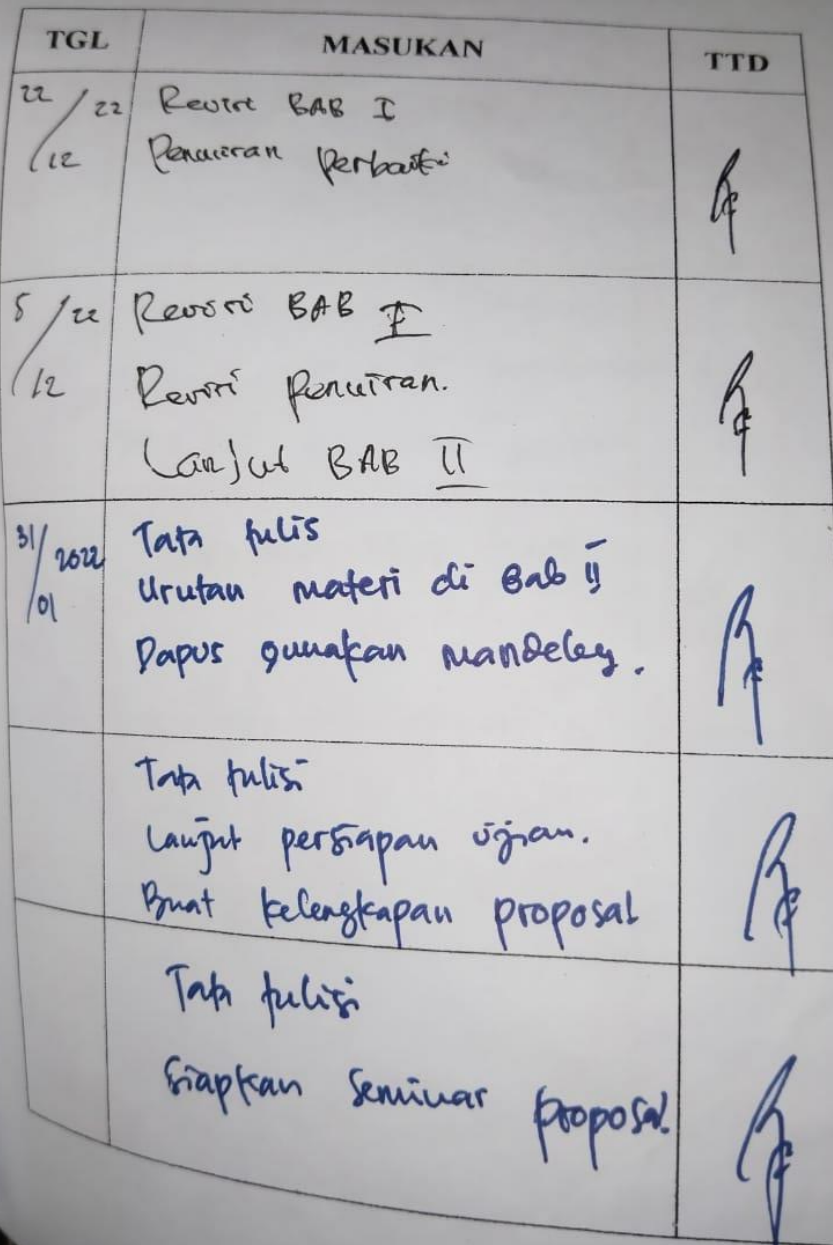 TGL MASUKAN TTD
22/12 22 Revisi BAB I
Penulisan perbaiki
5/12 22 Revisi BAB I
Revisi Penulisan.
Lanjut BAB II
31/01 2022 Tata tulis
Urutan materi di Bab II
Dapus gunakan mandeley.
Tata tulisi
Lanjut persiapan ujian.
Buat kelengkapan proposal
Tata tulisi
Siapkan Seminar proposal.